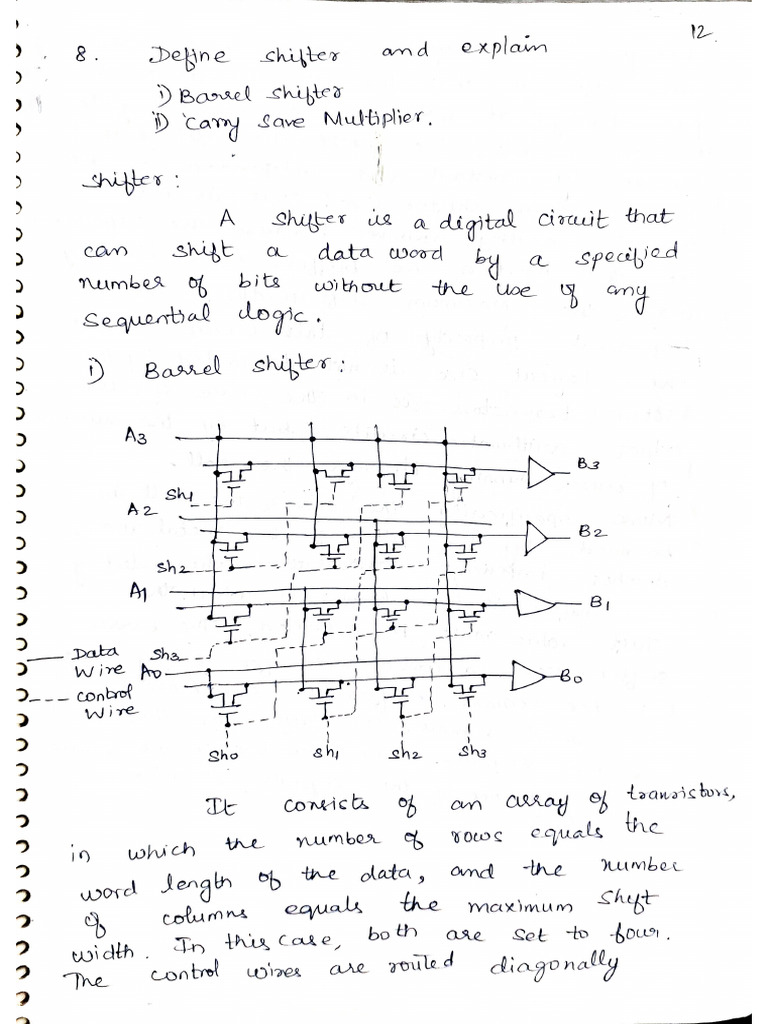 12
8. Define shifter and explain
i) Barrel shifter
ii) Carry Save Multiplier.
Shifter :
A shifter is a digital circuit that
can shift a data word by a specified
number of bits without the use of any
Sequential logic.
i) Barrel shifter :
A3
B3
Sh1
A2
B2
Sh2
A1
B1
Data Wire
Sh3
A0
B0
Control Wire
Sh0 Sh1 Sh2 Sh3
It consists of an array of transistors,
in which the number of rows equals the
word length of the data, and the number
of columns equals the maximum shift
width. In this case, both are set to four.
The control wires are routed diagonally